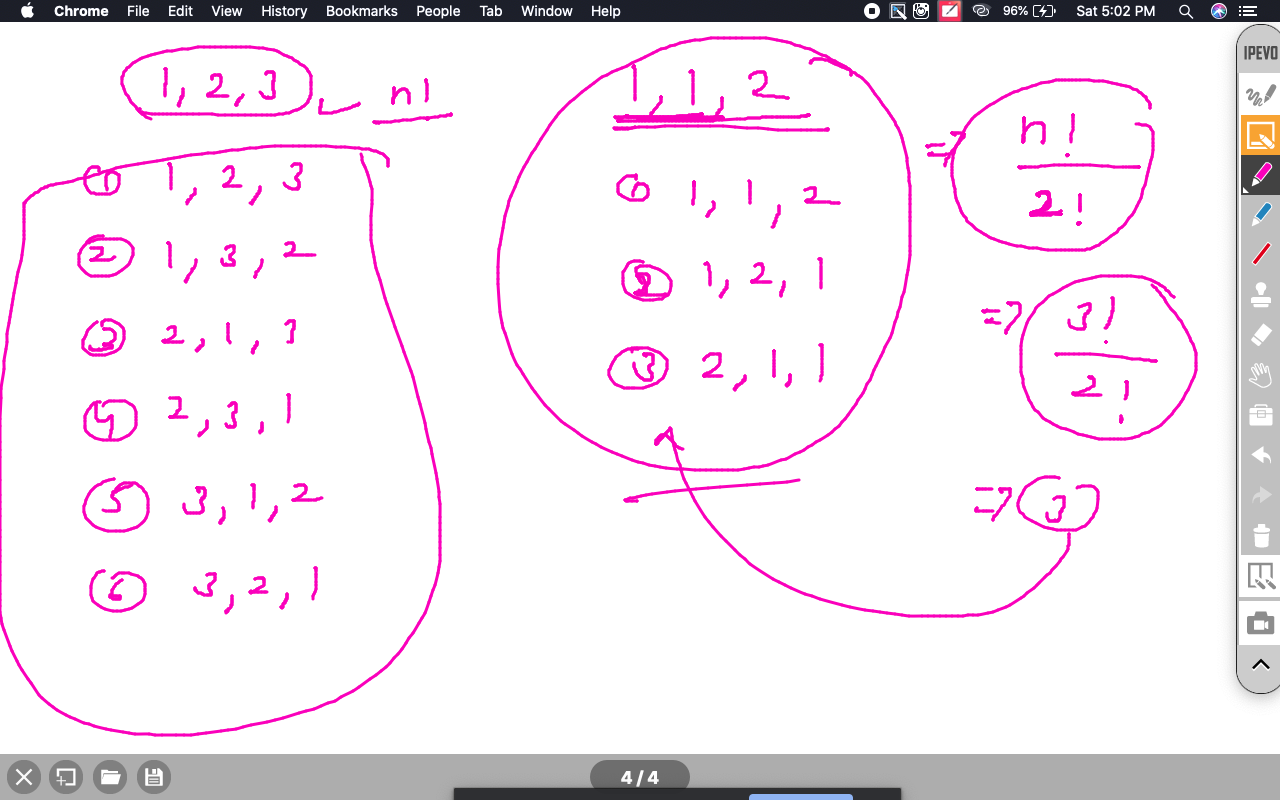 Chrome File Edit View History Bookmarks People Tab Window Help 96% Sat 5:02 PM
IPEVO
1, 2, 3 n!
① 1, 2, 3
② 1, 3, 2
③ 2, 1, 3
④ 2, 3, 1
⑤ 3, 1, 2
⑥ 3, 2, 1
1, 1, 2
① 1, 1, 2
② 1, 2, 1
③ 2, 1, 1
=> n!
2!
=> 3!
2!
=> 3
4 / 4